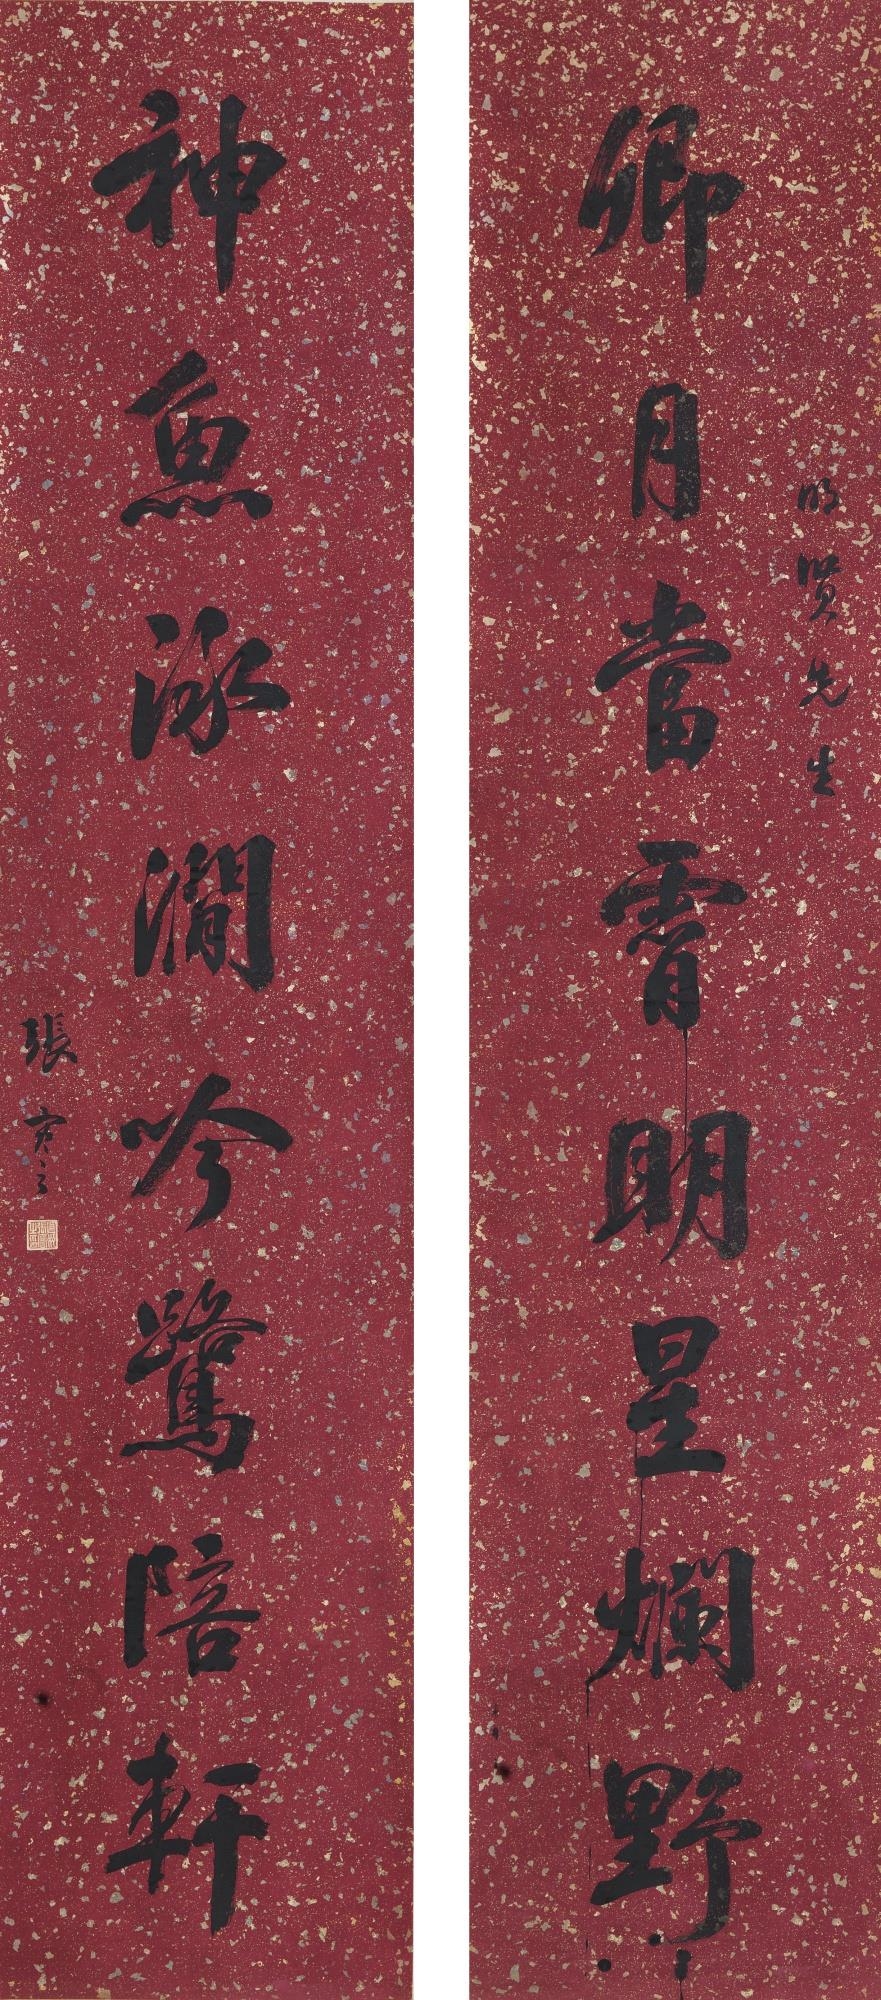 卿月當霄明星爛野
明賢先生
神魚泳澗吟鷺陪軒
張寒之